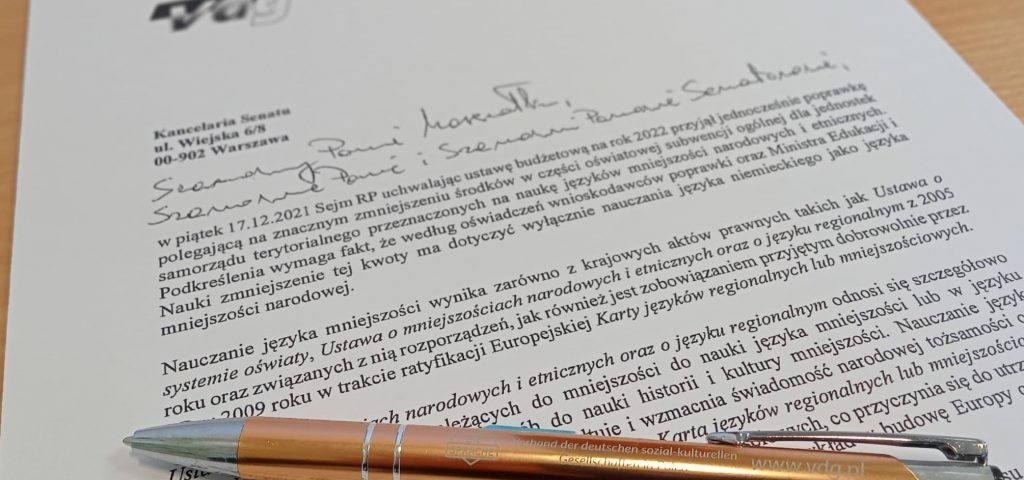 vdg
Kancelaria Senatu
ul. Wiejska 6/8
00-902 Warszawa
Szanowny Panie Marszałku,
Szanowne Panie i Szanowni Panowie Senatorowie,
w piątek 17.12.2021 Sejm RP uchwalając ustawę budżetową na rok 2022 przyjął jednocześnie poprawkę
polegającą na znacznym zmniejszeniu środków w części oświatowej subwencji ogólnej dla jednostek
samorządu terytorialnego przeznaczonych na naukę języków mniejszości narodowych i etnicznych.
Podkreślenia wymaga fakt, że według oświadczeń wnioskodawców poprawki oraz Ministra Edukacji i
Nauki zmniejszenie tej kwoty ma dotyczyć wyłącznie nauczania języka niemieckiego jako języka
mniejszości narodowej.
Nauczanie języka mniejszości wynika zarówno z krajowych aktów prawnych takich jak Ustawa o
systemie oświaty, Ustawa o mniejszościach narodowych i etnicznych oraz o języku regionalnym z 2005
roku oraz związanych z nią rozporządzeń, jak również jest zobowiązaniem przyjętym dobrowolnie przez
2009 roku w trakcie ratyfikacji Europejskiej Karty języków regionalnych lub mniejszościowych.
narodowych i etnicznych oraz o języku regionalnym odnosi się szczegółowo
do mniejszości do nauki języka mniejszości lub w języku
do nauki historii i kultury mniejszości. Nauczanie języka
i wzmacnia świadomość narodowej tożsamości
Karta języków regionalnych lub
co przyczynia się do
budowę Europy
Verband der deutschen sozial-kulturellen
Gesellschaften in
www.vdg.pl